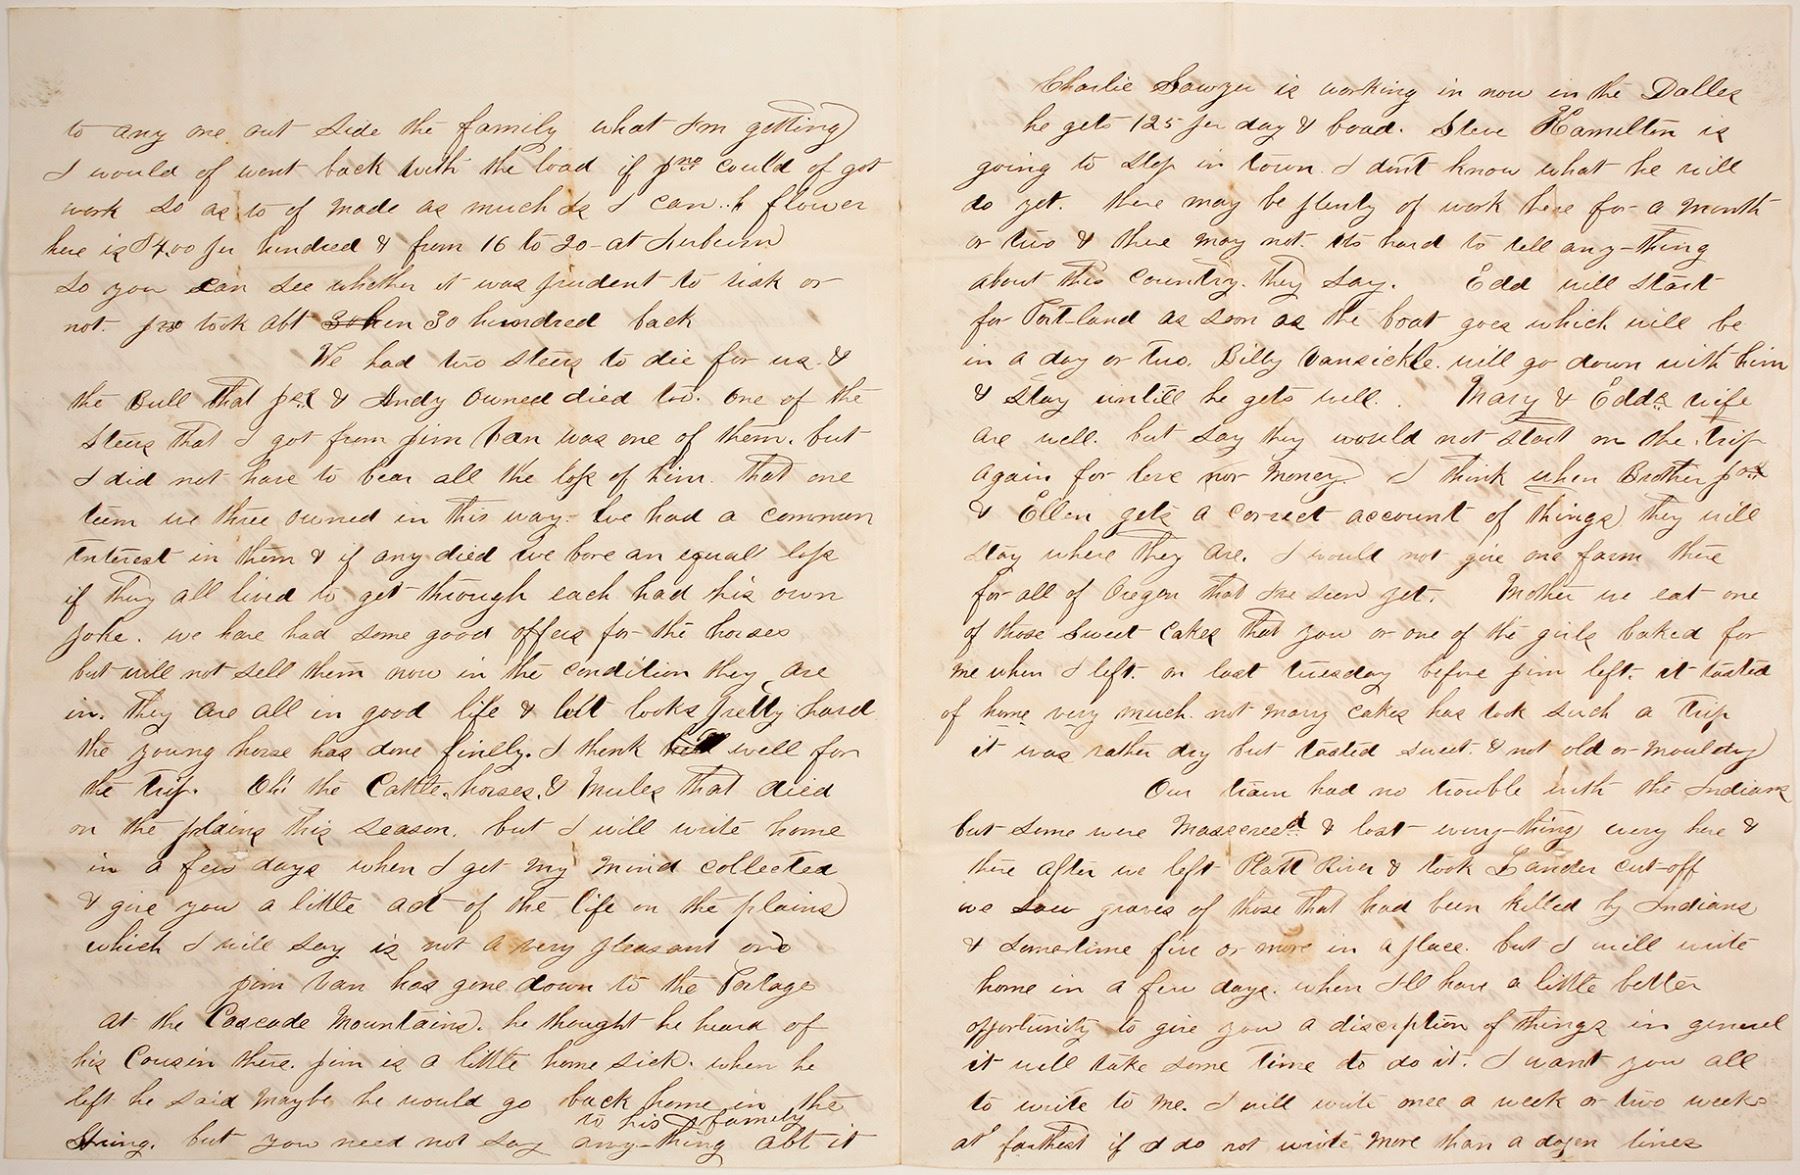 to any one out side the family what I'm getting
I would of went back with the load if Jno could of got
work so as to of made as much as I can. flower
here is $4.00 per hundred & from 16 to 20 at Auburn
so you can see whether it was prudent to risk or
not. Jno took abt 30 hundred back
We had two steers to die for us. &
the Bull that Jos & Andy owned died too. one of the
Steers that I got from Jim Van was one of them. but
I did not have to bear all the loss of him. that one
teem we three owned in this way. We had a common
interest in them & if any died we bore an equall loss
if they all lived to get through each had his own
yoke. we have had some good offers for the horses
but will not sell them now in the condition they are
in. they are all in good life & but looks pretty hard
the young horse has done finely. I think well for
the trip. Oh! the Cattle, horses, & Mules that died
on the plains this season. but I will write home
in a few days when I get my mind collected
& give you a little act of the life on the plains
which I will say is not a very pleasant one
Jim Van has gone down to the Portage
at the Cascade Mountains. he thought he heard of
his Cousin there. Jim is a little home sick. when he
left he said maybe he would go back home in the
to his family
Spring. but you need not say any-thing abt it
Charlie Sawyer is working in now in the Dalles
he gets 125 per day & boad. Steve Hamilton is
going to stop in town. I don't know what he will
do yet. there may be plenty of work here for a month
or two & there may not. its hard to tell any-thing
about this country. they say. Edd will start
for Port-land as soon as the boat goes which will be
in a day or two. Billy Vansickle will go down with him
& stay untill he gets well. Mary & Edds wife
are well. but say they would not start on the trip
again for love nor money. I think when Brother Jos
& Ellen gets a correct account of things they will
stay where they are. I would not give one farm there
for all of Oregon that I've seen yet. Mother we eat one
of those sweet cakes that you or one of the girls baked for
me when I left. on last tuesday before Jim left. it tasted
of home very much. not many cakes has took such a trip
it was rather dry but tasted sweet. & not old or mouldy
Our train had no trouble with the Indians
but some were Masecreed & lost every-thing every here &
there after we left Platt River & took Lander cut-off
we saw graves of those that had been killed by Indians
& sometime five or more in a place. but I will write
home in a few days. when I'll have a little better
opportunity to give you a discription of things in general
it will take some time to do it. I want you all
to write to me. I will write once a week or two weeks
at farthest if I do not write more than a dozen lines